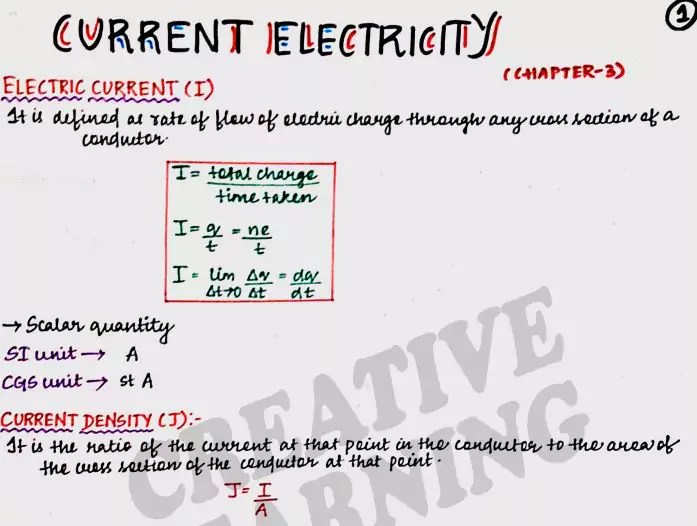 1
CURRENT ELECTRICITY
(CHAPTER-3)
ELECTRIC CURRENT (I)
It is defined as rate of flow of electric charge through any cross section of a
conductor.
I = total charge / time taken
I = q/t = ne/t
I = lim Δt→0 Δq/Δt = dq/dt
→ Scalar quantity
SI unit → A
CGS unit → st A
CURRENT DENSITY (J):-
It is the ratio of the current at that point in the conductor to the area of
the cross section of the conductor at that point.
J = I/A
CREATIVE
LEARNING